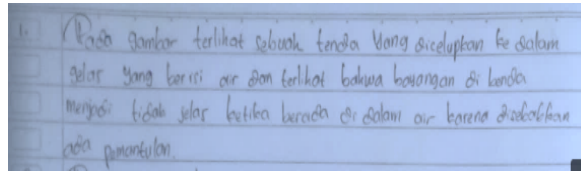 1. Pada gambar terlihat sebuah benda yang dicelupkan ke dalam
gelas yang berisi air dan terlihat bahwa bayangan di benda
menjadi tidak jelas ketika berada di dalam air karena disebabkan
ada pemantulan.